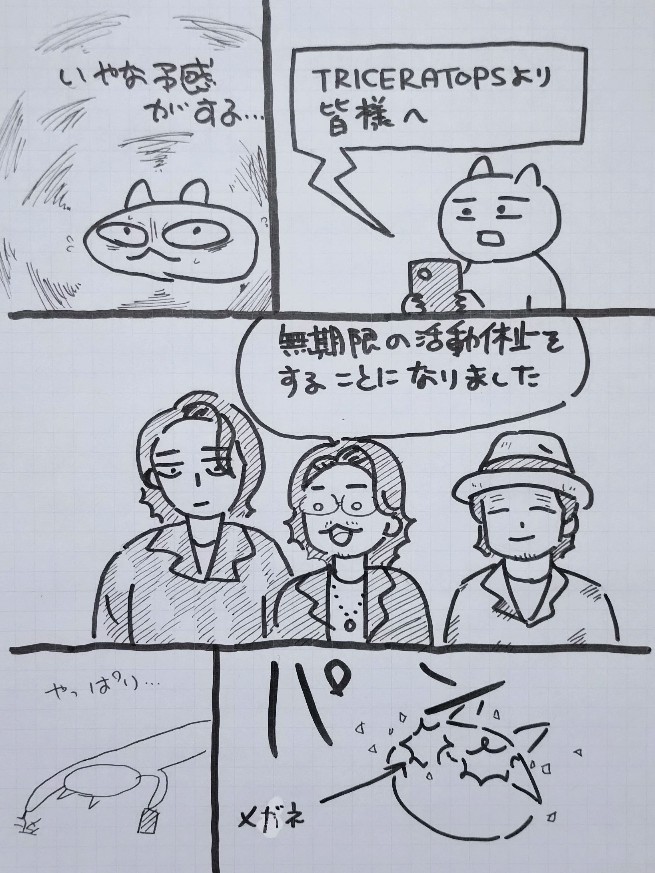 TRICERATOPSより
皆様へ
いやな予感
がする…
無期限の活動休止を
することになりました
パン
メガネ
やっぱり…